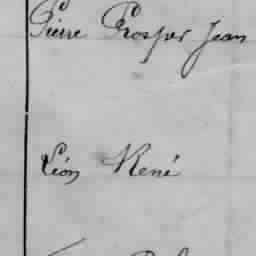 Pierre Prosper Jean
Léon René